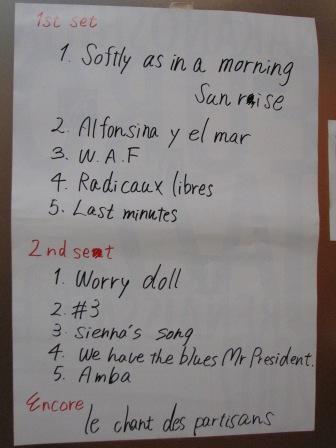 1st set
1. Softly as in a morning
Sunrise
2. Alfonsina y el mar
3. W.A.F
4. Radicaux libres
5. Last minutes
2nd set
1. Worry doll
2. #3
3. Sienna's song
4. We have the blues Mr President.
5. Amba
Encore
le chant des partisans